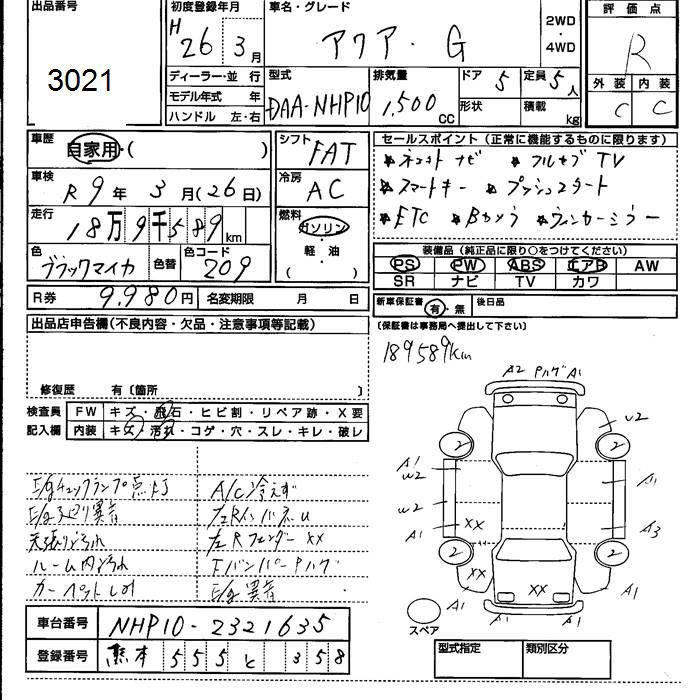 出品番号
3021
初度登録年月
H 26年 3月
車名・グレード
アクア・G
2WD・4WD
評価点
R
外装 内装
C C
ディーラー・並行
モデル年式 年
ハンドル 左・右
型式
DAA-NHP10
排気量
1,500 CC
ドア 5
形状
定員 5人
積載 kg
車歴
自家用・( )
車検
R 9年 3月(26日)
走行
18万9千589km
色
ブラックマイカ
色替
色コード
209
シフト
FAT
冷房
AC
燃料
ガソリン・軽・油
( )
セールスポイント (正常に機能するものに限ります)
★ネットナビ ★フルセグTV
★スマートキー ★プッシュスタート
★ETC ★Bカメラ ★ウィンカーミラー
装備品 (純正品に限り○をつけてください)
PS PW ABS エアB AW
SR ナビ TV カワ
R券 9,980円 名変期限 月 日
新車保証書 有・無 後日品
〔保証書は事務局へ提出して下さい〕
出品店申告欄(不良内容・欠品・注意事項等記載)
189589km
修復歴 有〔箇所 〕
検査員 FW キズ・飛石・ヒビ割・リペア跡・X要
記入欄 内装 キズ・汚れ・コゲ・穴・スレ・キレ・破レ
E/gチェックランプ点灯
E/g廻り異音
天張り汚れ
ルーム内汚れ
A/C冷えず
左RインパネU
左RフェンダーXX
FバンパーPハゲ
E/g異音
A2 PハゲA1
U2
2 2
A1
U2
A1
U2
A1 XX
A3
2 2
XX
XX
A1
A1
A1
スペア
車台番号 NHP10-2321635
登録番号 熊本 555 と 358
型式指定 類別区分